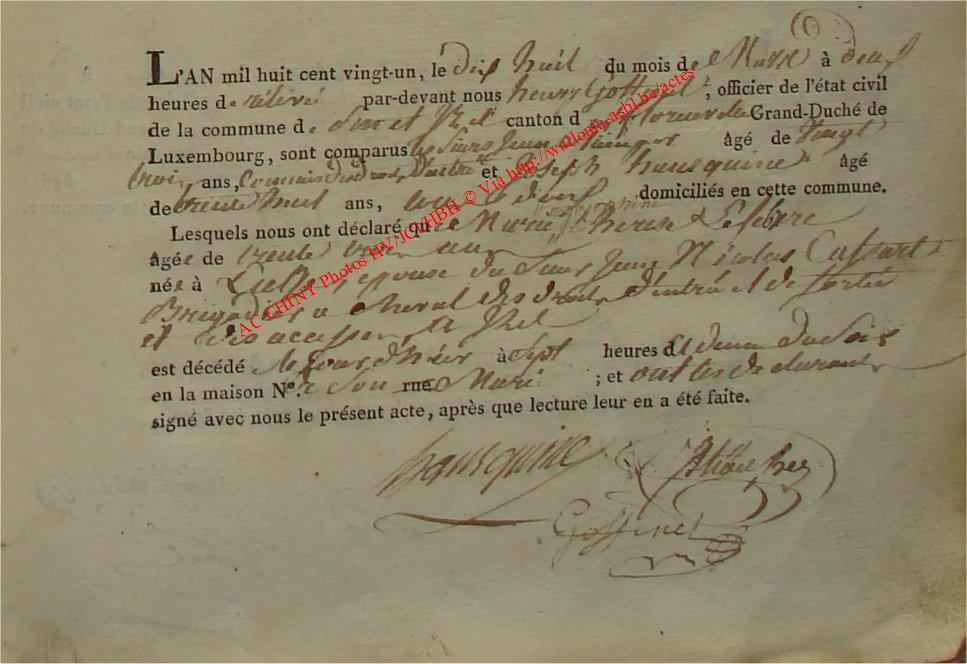 L'AN mil huit cent vingt-un, le dix huit du mois de Mars à deux
heures de relevé par-devant nous henry Goffinet, officier de l'état civil
de la commune de canton de florenville Grand-Duché de
Luxembourg, sont comparus les Sieurs Jean âgé de vingt
trois ans, Commis des Droits D'entrée et Joseph hansquine âgé
de trente huit ans, tous deux domiciliés en cette commune.
Lesquels nous ont déclaré que Marie Josephine Therese Lefebvre
âgée de trente trois ans
née à Lille, epouse du Sieur Jean Nicolas Caffart
Brigadier a cheval des droits D'entrée et de sortie
et des accises, a
est décédé le jour d'hier à Sept heures et demie du Soir
en la maison N°. de Son rue Mari ; et ont les declarants
signé avec nous le présent acte, après que lecture leur en a été faite.
hansquine
Goffinet
ACCHINY Photos HV/JCVHBH © Via http://wallonia-asbl.be/actes